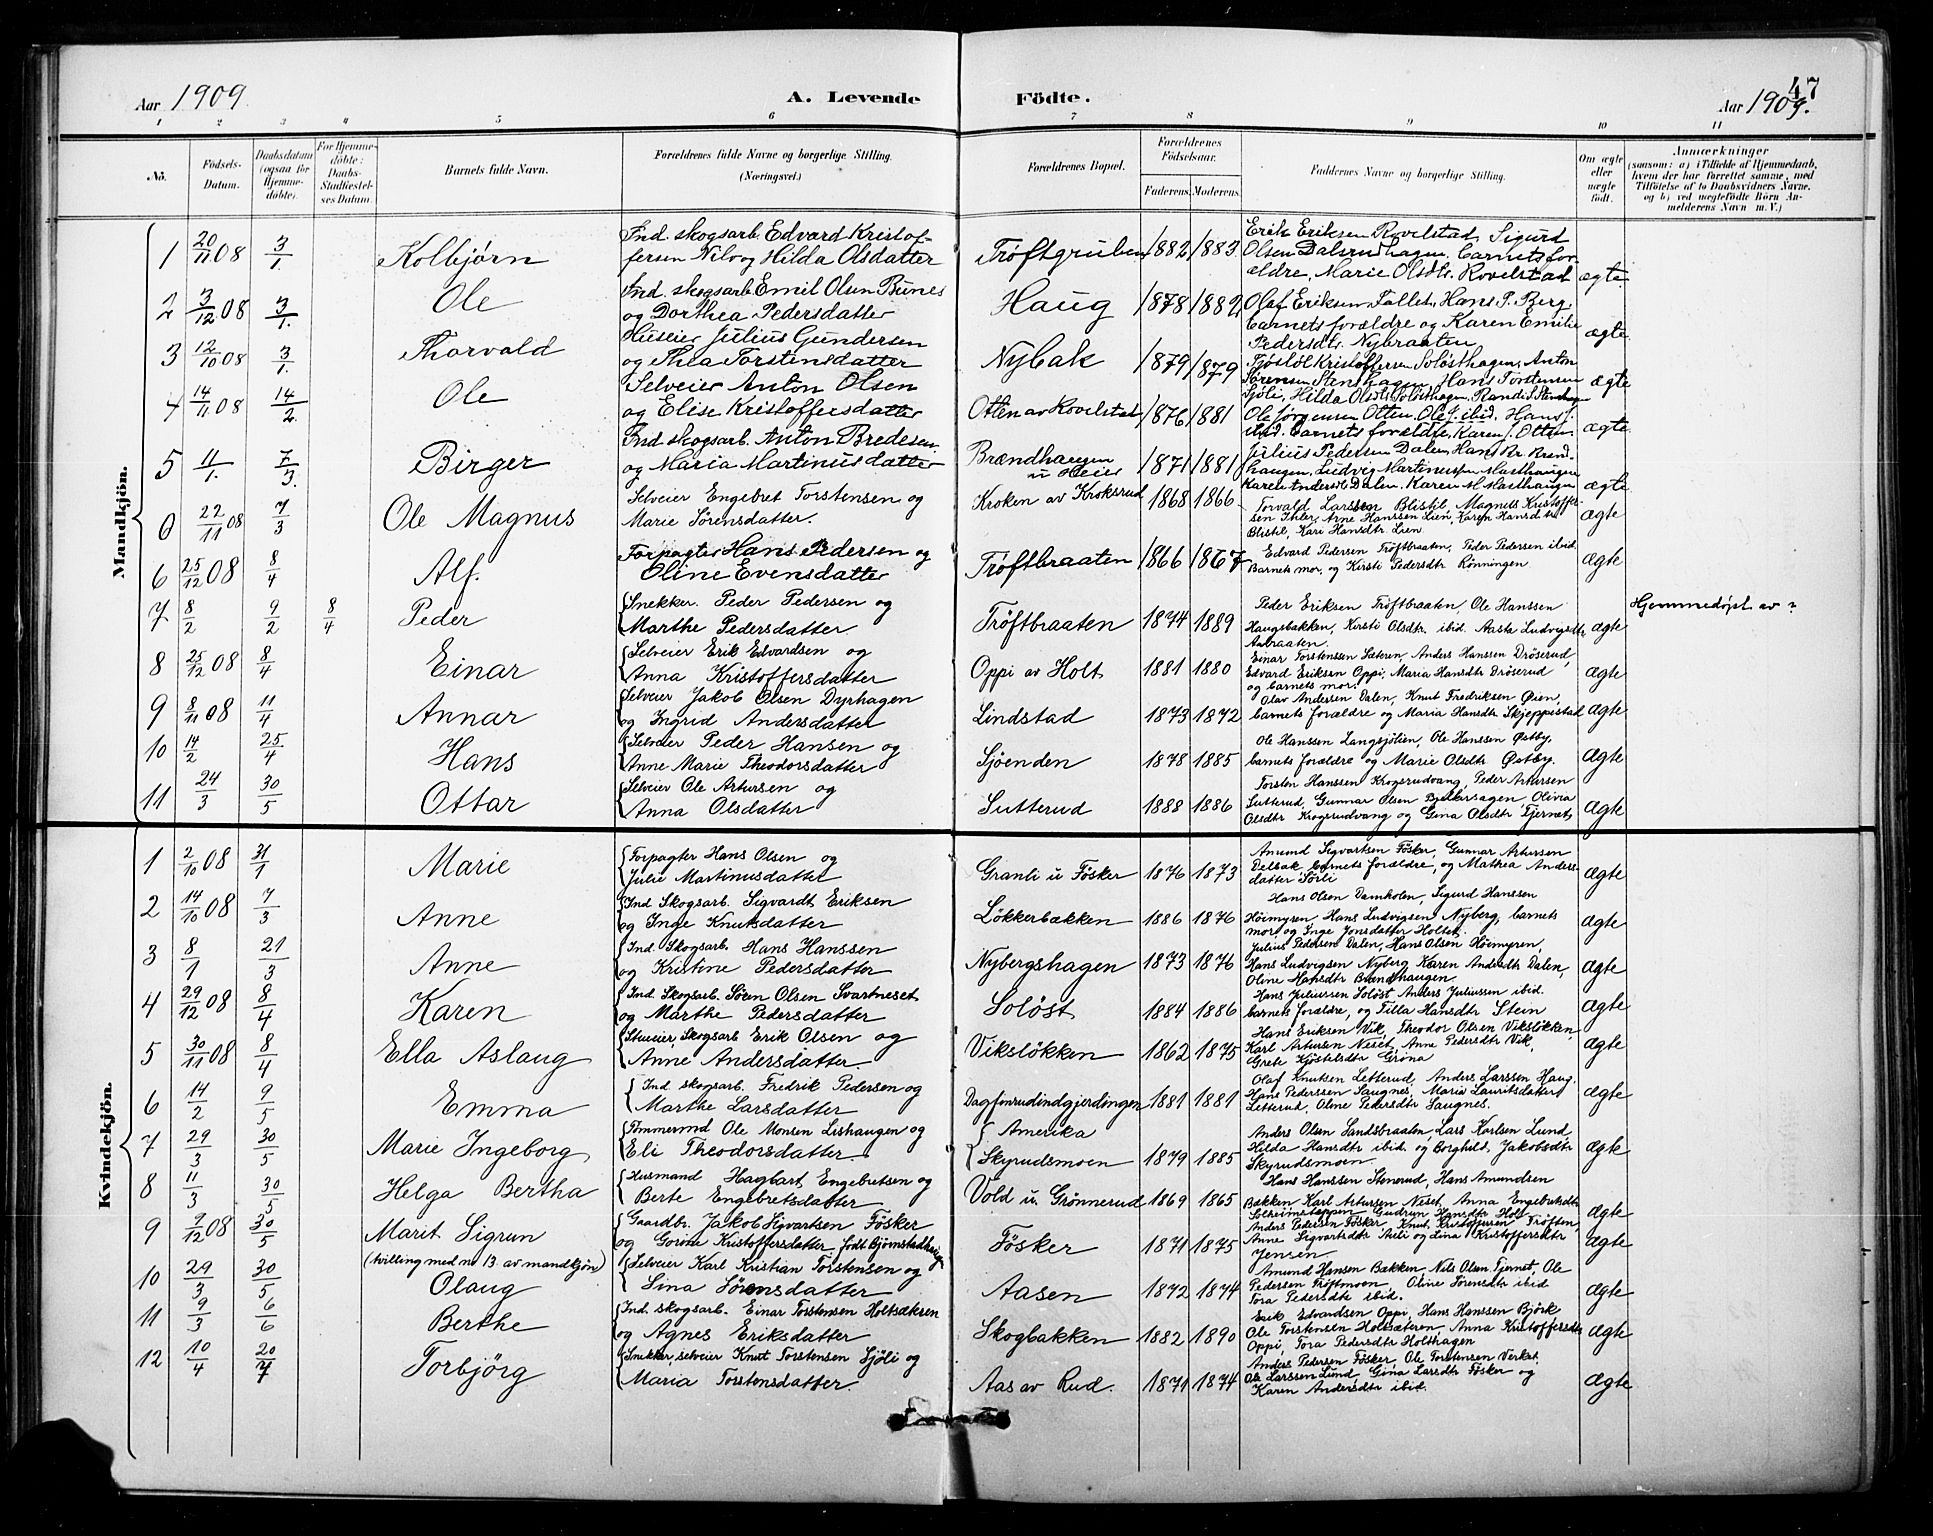 Aar 1909 A. Levende Födte. Aar 1909. 47
1 2 3 4 5 6 7 8 9 10 11
No. Födsels-Datum. Daabsdatum (ogsaa for Hjemmedöbte). For Hjemmedöbte: Daabs-Stadfæstelses Datum. Barnets fulde Navn. Forældrenes fulde Navne og borgerlige Stilling. (Næringsvei.) Forældrenes Bopæl. Forældrenes Födselsaar. Faderens. Moderens. Faddernes Navne og borgerlige Stilling. Om ægte eller uægte født. Anmærkninger (saasom: a) i Tilfælde af Hjemmedaab, hvem der har forrettet samme, med Tilföielse af to Daabsvidners Navne, og b) ved uægtefödte Börn Anmelderens Navn m. V.)
Mandkjön.
1 20/11 08 3/1. Kolbjørn Ind. skogsarb. Edvard Kristoffersen Nilo og Hilda Olsdatter Trøftgruben 1882 1883 Erik Eriksen Rovelstad, Sigurd Olsen Dalsrudhagen, barnets forældre, Marie Olsdtr. Rovelstad ægte
2 3/12 08 3/1. Ole Ind. skogsarb. Emil Olsen Bunes og Dorthea Pedersdatter Haug 1878 1882 Olaf Eriksen Fallet, Hans P. Berg, barnets forældre og Karen Emilie Pedersdtr. Nybraaten ægte
3 12/10 08 3/1. Thorvald Huseier Julius Gundersen og Thea Torstensdatter Nybak 1879 1879 Tjøstol Kristoffersen Soløsthagen, Anton Sørensen Stenshagen, Hans Torstensen Sjöli, Hilda Olsdtr. Soløsthagen, Randi S. Stenshagen ægte
4 14/11 08 14/2. Ole Selveier Anton Olsen og Elise Kristoffersdatter Otten av Rovelstad 1876 1881 Ole Jørgensen Otten, Ole J. ibid. Hans J. ibid. barnets forældre, Karen J. Otten. ægte
5 11/1. 7/3. Birger Ind. skogsarb. Anton Bredesen og Maria Martinusdatter Brændhaugen u Meier 1871 1881 Julius Pedersen Dalen, Hans Kr. Brændhaugen, Ludvig Martinussen Masthaugen Karen Andersdtr Dalen, Karen M. Masthaugen ægte
0 22/11 08 7/3 Ole Magnus Selveier Engebret Torstensen og Marie Sørensdatter. Kroken av Kroksrud 1868 1866 Torvald Larssen Blistil, Magnus Kristoffersen Ihler, Arne Hanssen Lien, Karen Hansdtr Blistil, Kari Hansdtr. Lien ægte
6 25/12 08 8/4 Alf. Forpagter Hans Pedersen og Oline Evensdatter Trøftbraaten 1866 1867 Edvard Pedersen Trøftbraaten, Peder Pedersen ibid. Barnets mor, og Kirsti Pedersdtr Rönningen ægte
7 8/2 9/2 8/4 Peder Snekker. Peder Pedersen og Marthe Pedersdatter Trøftbraaten 1874 1889 Peder Eriksen Trøftbraaten, Ole Hanssen Haugsbakken, Kirsti Olsdtr. ibid. Aasta Ludvigsdtr Aabraaten. ægte Hjemmedöpt av ?
8 25/12 08 8/4 Einar Selveier Erik Edvardsen og Anna Kristoffersdatter Oppi av Holt 1881 1880 Einar Torstenssen Sæteren, Anders Hanssen Dröserud, Edvard Eriksen Oppi, Maria Hansdtr Dröserud og barnets mor. ægte
9 8/11 08 11/4 Annar Selveier Jakob Olsen Dyrhagen og Ingrid Andersdatter Lindstad 1873 1872 Olav Andersen Dalen, Knut Fredriksen Øien, barnets forældre og Maria Hansdtr Skjeppestad ægte
10 14/2 25/4 Hans Selveier Peder Hansen og Anne Marie Theodorsdatter Sjøenden 1878 1885 Ole Hanssen Langsjölien, Ole Hanssen Østby, barnets forældre og Marie Olsdtr Østby. ægte
11 24/3 30/5 Ottar Selveier Ole Artursen og Anna Olsdatter Sutterud 1888 1886 Torsten Hanssen Krogsrudvang, Peder Artursen Sutterud, Gunnar Olsen Bjelkersagen, Olivia Olsdtr Krogsrudvang og Gina Olsdtr Tjernet ægte
Kvindekjön.
1 2/10 08 31/1 Marie Forpagter Hans Olsen og Julie Martinusdatter Granli u Fösker 1876 1873 Amund Sigvartsen Fösker, Gunnar Artursen Delbak, barnets forældre, og Mathea Andersdatter Sörli ægte
2 14/10 08 7/3 Anne Ind Skogsarb. Sigvardt Eriksen og Inge Knutsdatter Lökkerbækken 1886 1876 Hans Olsen Damholen, Sigurd Hanssen Höimyren, Hans Ludvigsen Nyberg, barnets mor og Inge Jonsdatter Holtet. ægte
3 8/1 21/3 Anne Ind. Skogsarb. Hans Hanssen og Kristine Pedersdatter Nybergshagen 1873 1876 Julius Pedersen Dalen, Hans Olsen Höimyren, Hans Ludvigsen Nyberg Karen Andersdtr Dalen, Oline Hansdtr Brændhaugen. ægte
4 29/12 08 8/4 Karen Ind. Skogsarb. Sören Olsen Svartneset og Marthe Pedersdatter Solöst 1884 1886 Hans Juliussen Solöst, Anders Juliussen ibid. barnets forældre, og Tilla Hansdtr Stein ægte
5 30/11 08 8/4 Ella Aslaug Stueeier, Skogsarb Erik Olsen og Anne Andersdatter. Vikslökken 1862 1875 Hans Eriksen Vik, Theodor Olsen Vikslökken, Karl Artursen Neset, Anne Pedersdtr Vik, Grete Kjöstelsdtr Gröna ægte
6 14/2 9/5 Emma Ind skogsarb. Fredrik Pedersen og Marthe Larsdatter Dagfinrudindgjerdingen 1881 1881 Olaf Knutsen Letterud, Anders Larssen Haug. Hans Pederssen Saugnes, Maria Lauritsdatter Letterud, Oline Pedersdtr Saugnes. ægte
7 29/3 30/5 Marie Ingeborg Tömmermd Ole Monsen Lishaugen og Eli Theodorsdatter. Amerika Skyrudsmoen 1879 1885 Anders Olsen Sandsbraaten, Lars Karlsen Lund Hilda Hansdtr ibid. og Borghild Jakobsdtr Skyrudsmoen ægte
8 11/3 30/5 Helga Bertha Husmand Hagbart Engebretsen og Berte Engebretsdatter Vold u. Grönnerud 1869 1865 Hans Hanssen Stenerud, Hans Amundsen Bækken Karl Artursen Neset, Anna Engebretsdtr Solheimsteppen Gudrun Hansdtr Holt ægte
9 9/12 08 30/5 Marit Sigrun Gaardbr. Jakob Sigvartsen Fösker og Gorine Kristoffersdatter født Björnstadhaugen Fösker 1871 1875 Anders Pedersen Fösker, Knut Kristoffersen Tröften, Anne Sigvartsdtr Asli og Lina Kristoffersdtr Jensen ægte
(tvilling med no 13. av mandkjön)
10 29/3 30/5 Olaug Selveier Karl Kristian Torstensen og Lina Sörensdatter Aasen 1872 1874 Amund Hansen Bækken, Nils Olsen Tjernet, Ole Pedersen Tröftmoen, Oline Sörensdtr ibid Tora Pedersdtr ibid. ægte
11 9/3 6/6 Berthe Ind. skogsarb. Einar Torstensen Holtsæteren og Agnes Eriksdatter Skogbakken 1882 1890 Erik Edvardsen Oppi, Hans Hanssen Björk Ole Torstensen Holtsæteren Anna Kristoffersdtr Oppi, Tora Pedersdtr Holthagen ægte
12 10/4 20/7 Torbjörg Snikker, selveier Knut Torstensen Sjöli og Maria Torstensdatter. Aas av Rud. 1871 1874 Anders Pedersen Fösker, Ole Torstensen Verket. Ole Larssen Lund, Gina Larsdtr Fösker og Karen Andersdtr ibid. ægte